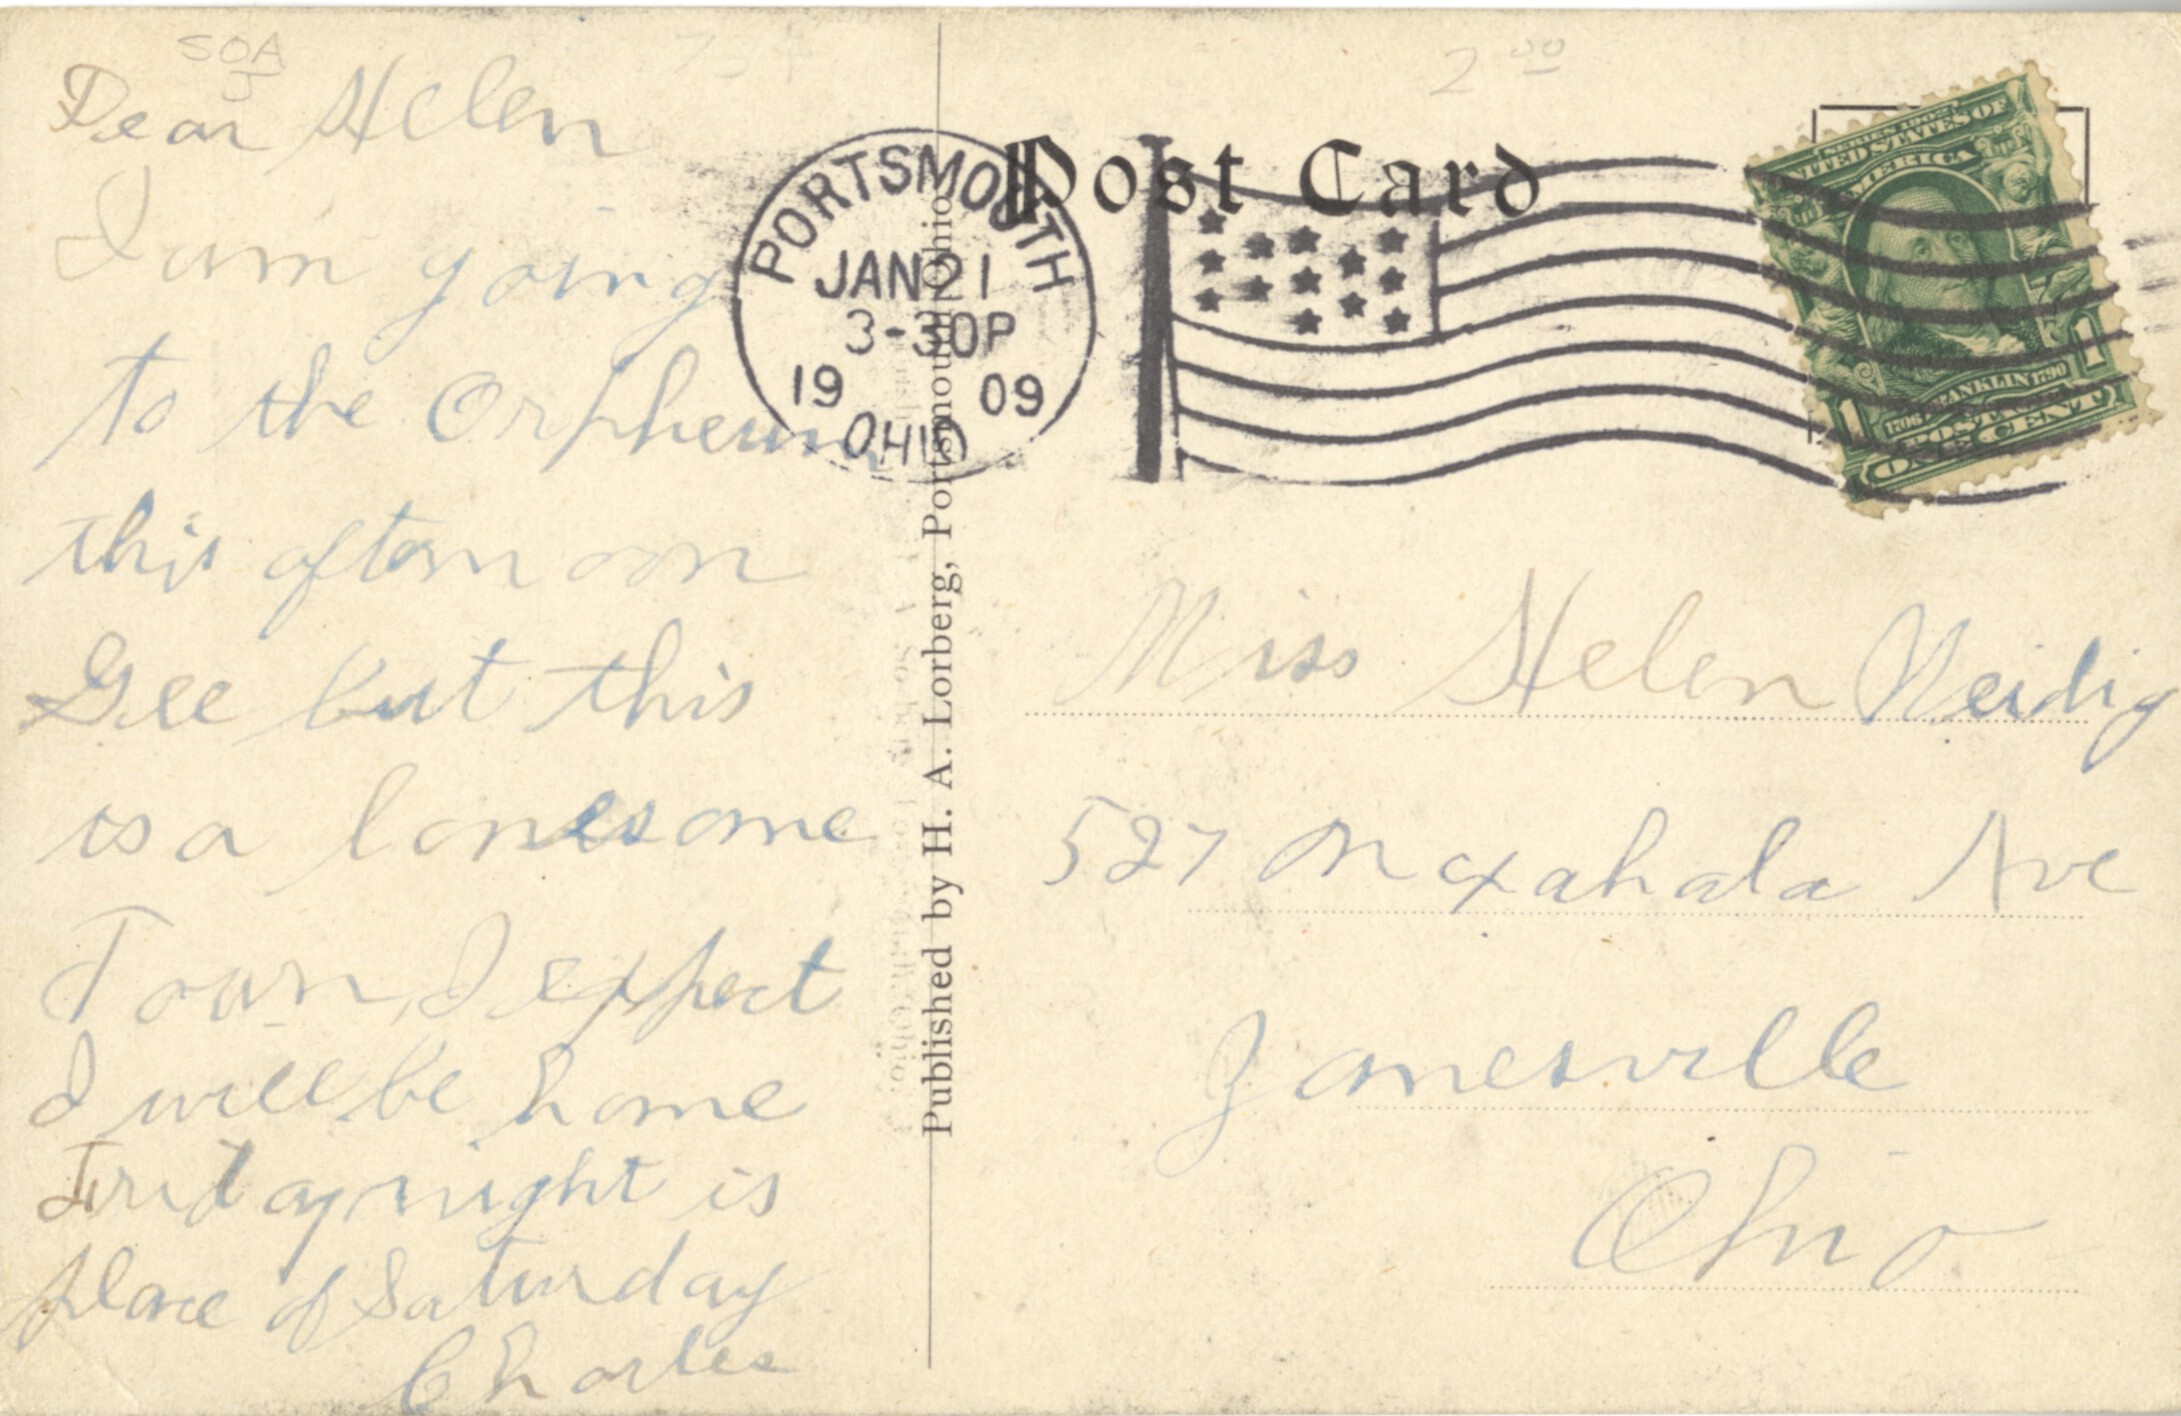 SOA
Dear Helen
I am going
to the Orpheum
this afternoon
Gee but this
is a lonesome
Town, I expect
I will be home
Friday night is
place of Saturday
Charles
Published by H. A. Lorberg, Portsmouth, Ohio.
2 00
Post Card
PORTSMOUTH
JAN 21
3-30P
1909
OHIO
SERIES 1902
UNITED STATES OF
AMERICA
1706 FRANKLIN 1790
POSTAGE
1 ONE CENT 1
Miss Helen Neidig
527 Moxahala Ave
Zanesville
Ohio